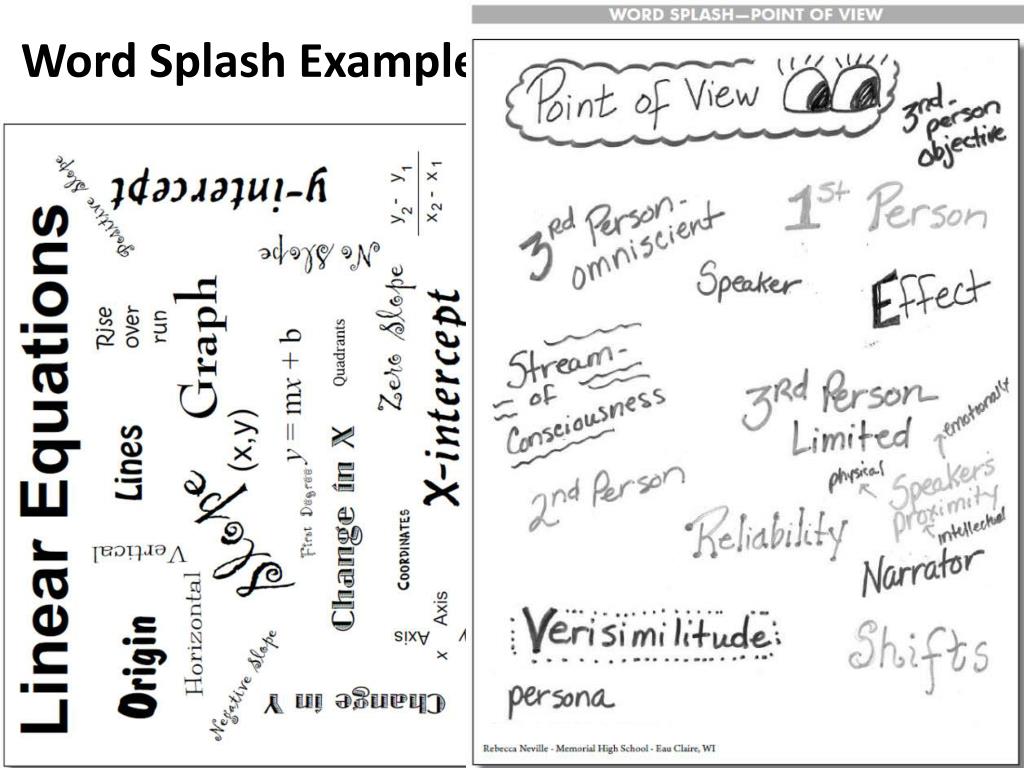 Word Splash Example
Linear Equations
Positive Slope
y-intercept
y2 - y1
x2 - x1
No Slope
Rise
over
run
Graph
y = mx + b
Quadrants
Zero Slope
X-intercept
Lines
(x,y)
Slope
First Degree
Change in X
Vertical
COORDINATES
Origin
Horizontal
Negative Slope
Change in Y
x Axis
Axis
WORD SPLASH—POINT OF VIEW
Point of View
3rd-
person
objective
3rd Person-
omniscient
1st Person
Speaker
Effect
Stream-
of
Consciousness
3rd Person
Limited
emotionally
physical
Speakers
proximity
intellectual
2nd Person
Reliability
Narrator
Verisimilitude
Shifts
persona
Rebecca Neville - Memorial High School - Eau Claire, WI